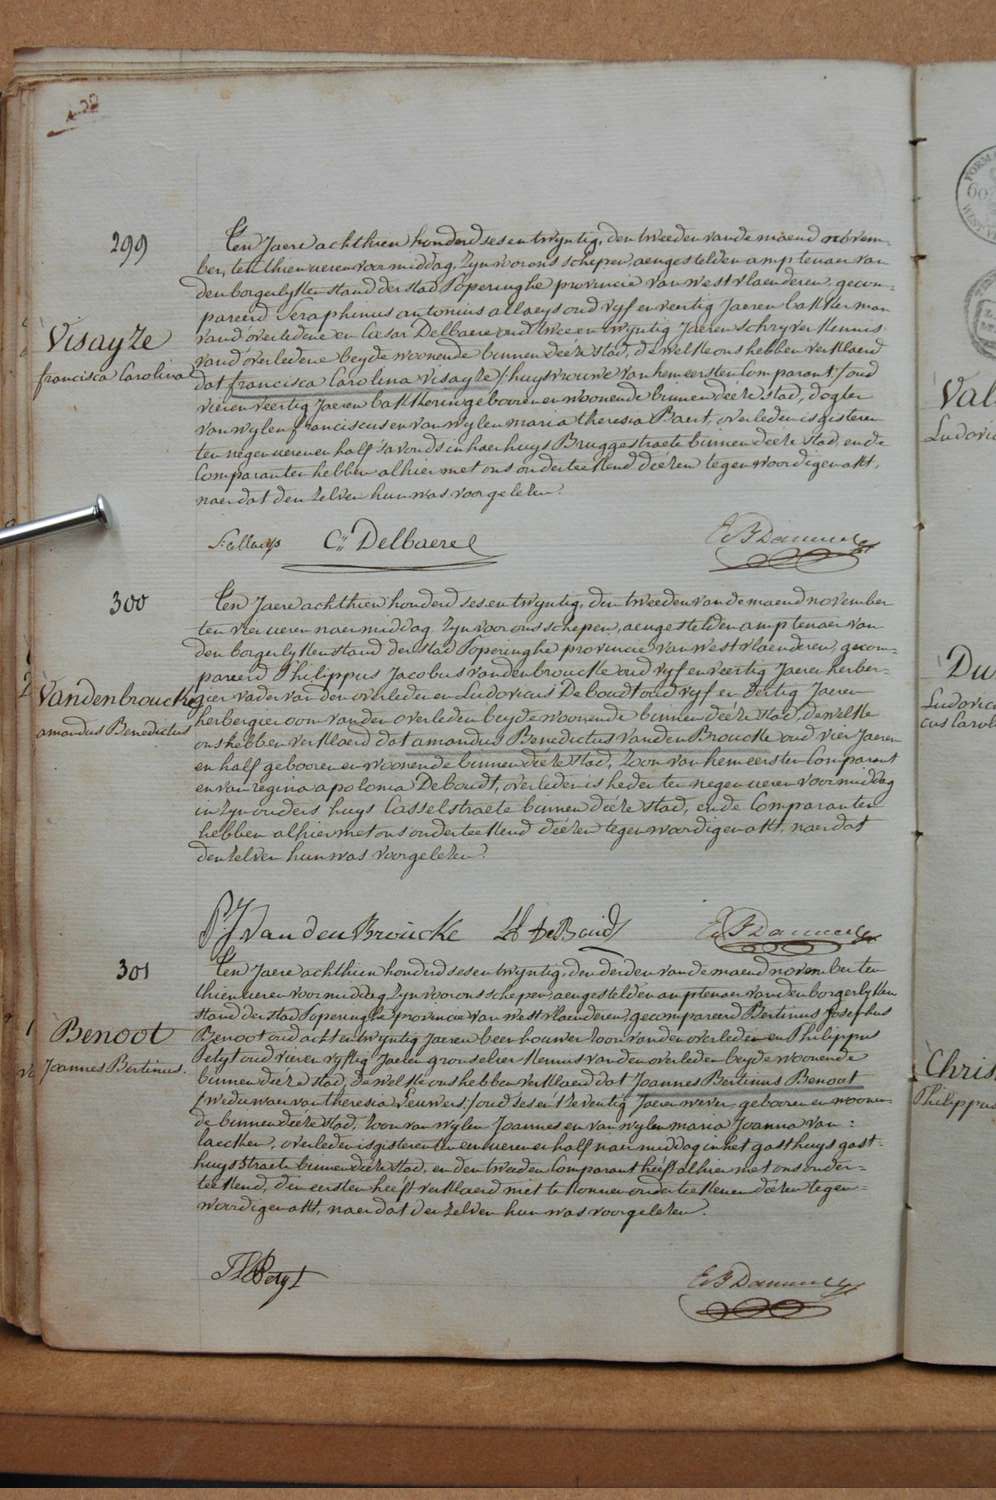 299
Visayze
francisca Carolina
Ten Jaere achthien honderd ses en twyntig, den tweeden van de maend novem-
ber, ten thien ueren voormiddag, zyn voor ons schepen, aengestelden amptenaer van
den borgerlyken stand der stad Poperinghe provincie van westvlaenderen, gecom-
pareerd Seraphinus antonius allaeys oud vyf en veertig Jaeren bakker man
vand'overledene en Cesar Delbaere oud twee en twyntig Jaeren schryver kennis
vand'overledene beyde woonende binnen deéze stad, de welke ons hebben verklaerd
dat francisca Carolina Visayze /:huysvrouwe van hem eersten Comparant:/ oud
vier en veertig Jaeren bakkerin gebooren en woonende binnen deéze stad, dogter
van wylen franciscus en van wylen maria theresia Baert, overleden is gisteren
ten negen ueren en half s'avonds in haer huys Bruggestraete binnen deéze stad, en de
Comparanten hebben alhier met ons onderteekend deézen tegenwoordigen akt,
naer dat den zelven hun was voorgelezen.
S: allaeys Cr Delbaere
300
Vandenbroucke
amandus Benedictus
Ten Jaere achthien honderd ses en twyntig, den tweeden van de maend november
ten vier ueren naermiddag, zyn voor ons schepen, aengestelden amptenaer van
den borgerlyken stand der stad Poperinghe provincie van westvlaenderen, gecom-
pareerd Philippus Jacobus vandenbroucke oud vyf en veertig Jaeren herber-
gier vader van den overleden en Ludovicus Deboudt oud vyf en dertig Jaeren
herbergier oom van den overleden beyde woonende binnen deéze stad, de welke
ons hebben verklaerd dat amandus Benedictus vanden Broucke oud vier Jaeren
en half gebooren en woonende binnen deéze stad, Zoon van hem eersten Comparant
en van regina apolonia Deboudt, overleden is heden ten negen ueren voormiddag
in zyn ouders huys Casselstraete binnen deéze stad, en de Comparanten
hebben alhier met ons onderteekend deézen tegenwoordigen akt, naer dat
den zelven hun was voorgelezen.
PJ VandenBroucke
301
Benoot
Joannes Bertinus.
Ten Jaere achthien honderd ses en twyntig, den derden van de maend november ten
thien ueren voormiddag, zyn voor ons schepen, aengestelden amptenaer van den borgerlyken
stand der stad Poperinghe provincie van westvlaenderen, gecompareerd Bertinus Josephus
Benoot oud acht en twyntig Jaeren beenhouwer zoon van den overleden en Philippus
Petyt oud vier en vyftig Jaeren kennis van den overleden beyde woonende
binnen deéze stad, de welke ons hebben verklaerd dat Joannes Bertinus Benoot
/:weduwaer van theresia Leuwers:/ oud ses en t'zeventig Jaeren wever, gebooren en woonen-
de binnen deéze stad, zoon van wylen Joannes en van wylen maria Joanna van-
laecken, overleden is gisteren ten een ueren en half naermiddag in het gasthuys gast-
huysstraete binnen deéze stad, en den tweeden Comparant heéft alhier met ons onder-
teekend, den eersten heéft verklaerd niet te konnen onderteekenen deézen tegen-
woordigen akt, naer dat den zelven hun was voorgelezen.
Petyt
Val
Ludovic
Du
Ludovicu
cus Carol
Chris
Philippus